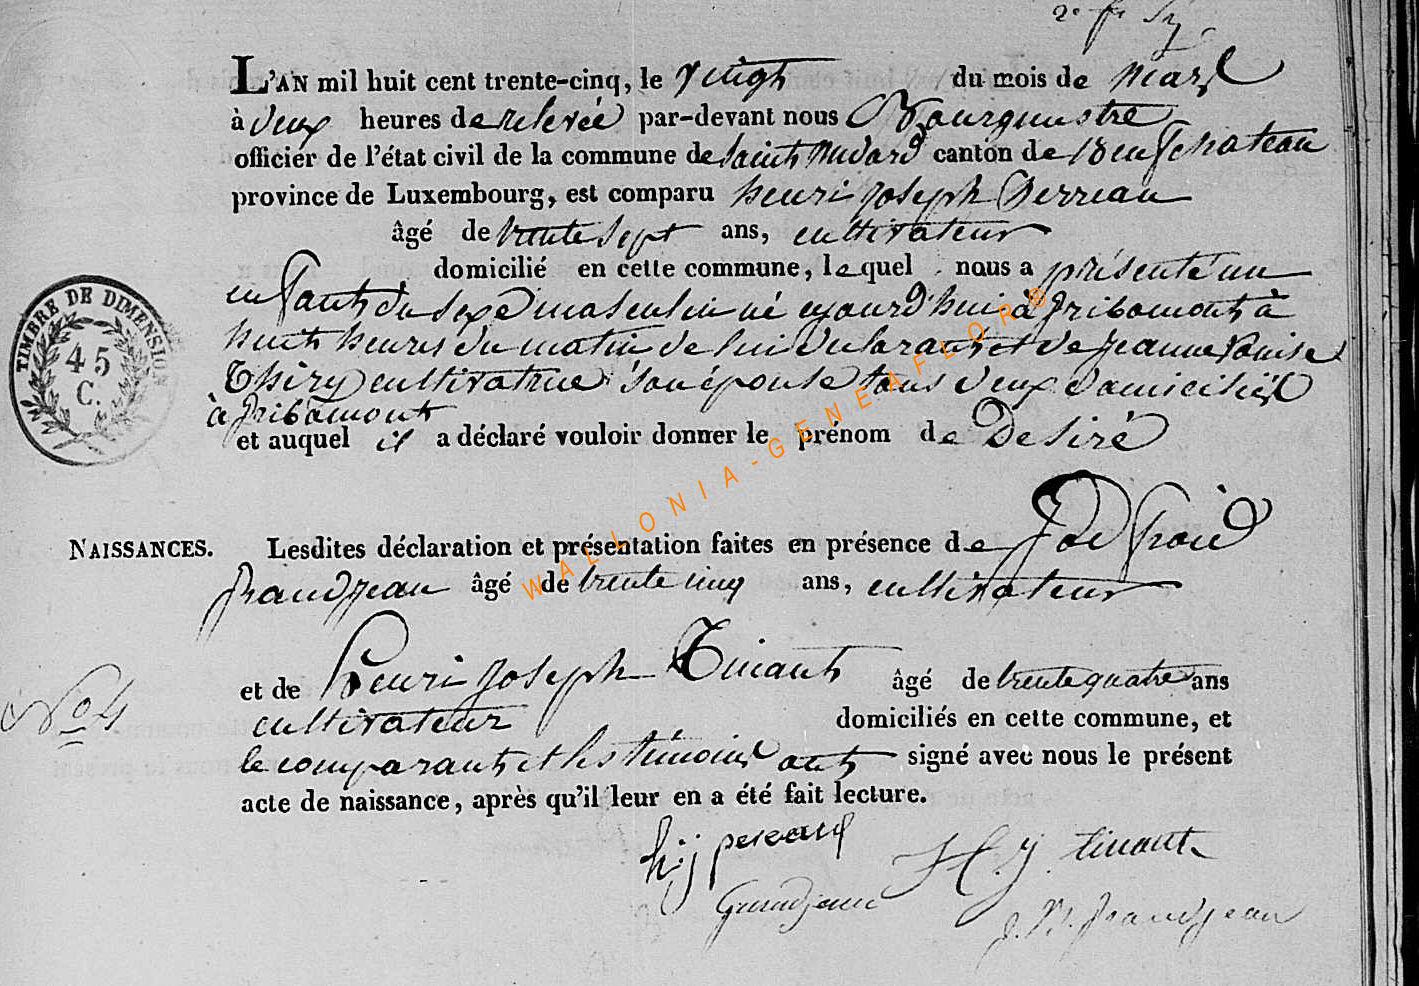 L'AN mil huit cent trente-cinq, le vingt du mois de mars
à deux heures de relevée par-devant nous Bourgmestre
officier de l'état civil de la commune de Saint Médard canton de Neufchateau
province de Luxembourg, est comparu henri joseph Perreau
âgé de trente sept ans, cultivateur
domicilié en cette commune, lequel nous a présenté un
enfant du sexe masculin né aujourd'hui à gribomont à
huit heures du matin de lui déclarant et de jeanne Louise
Thiry cultivatrice son épouse tous deux domiciliés
à gribomont
et auquel il a déclaré vouloir donner le prénom de Desiré
NAISSANCES.
Lesdites déclaration et présentation faites en présence de Godfroid
grandjean âgé de trente cinq ans, cultivateur
et de henri joseph Tinant âgé de trente quatre ans
No 4
cultivateur domiciliés en cette commune, et
le comparant et les témoins ont signé avec nous le présent
acte de naissance, après qu'il leur en a été fait lecture.
H. J. tinant
Grandjean
grandjean
TIMBRE DE DIMENSION
45
C.
WALLONIA-GENEAFLOR®